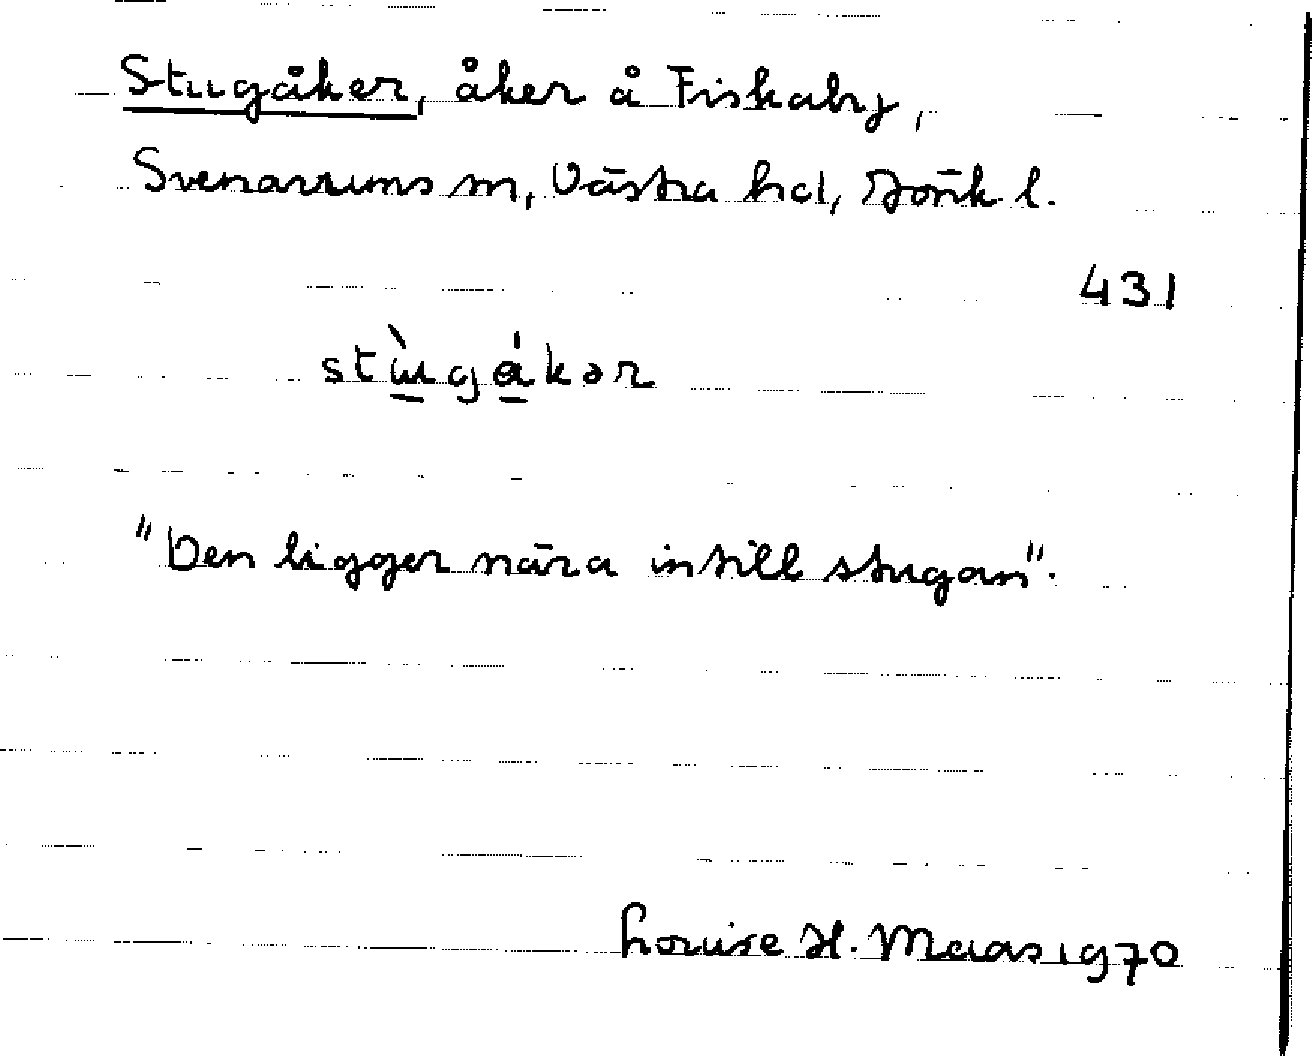 Stugåker, åker å Fiskaby,
Svenarums sn, Västra hd, Jönk l.
431
stùgákər
"Den ligger nära intill stugan".
Louise H. Maas 1970